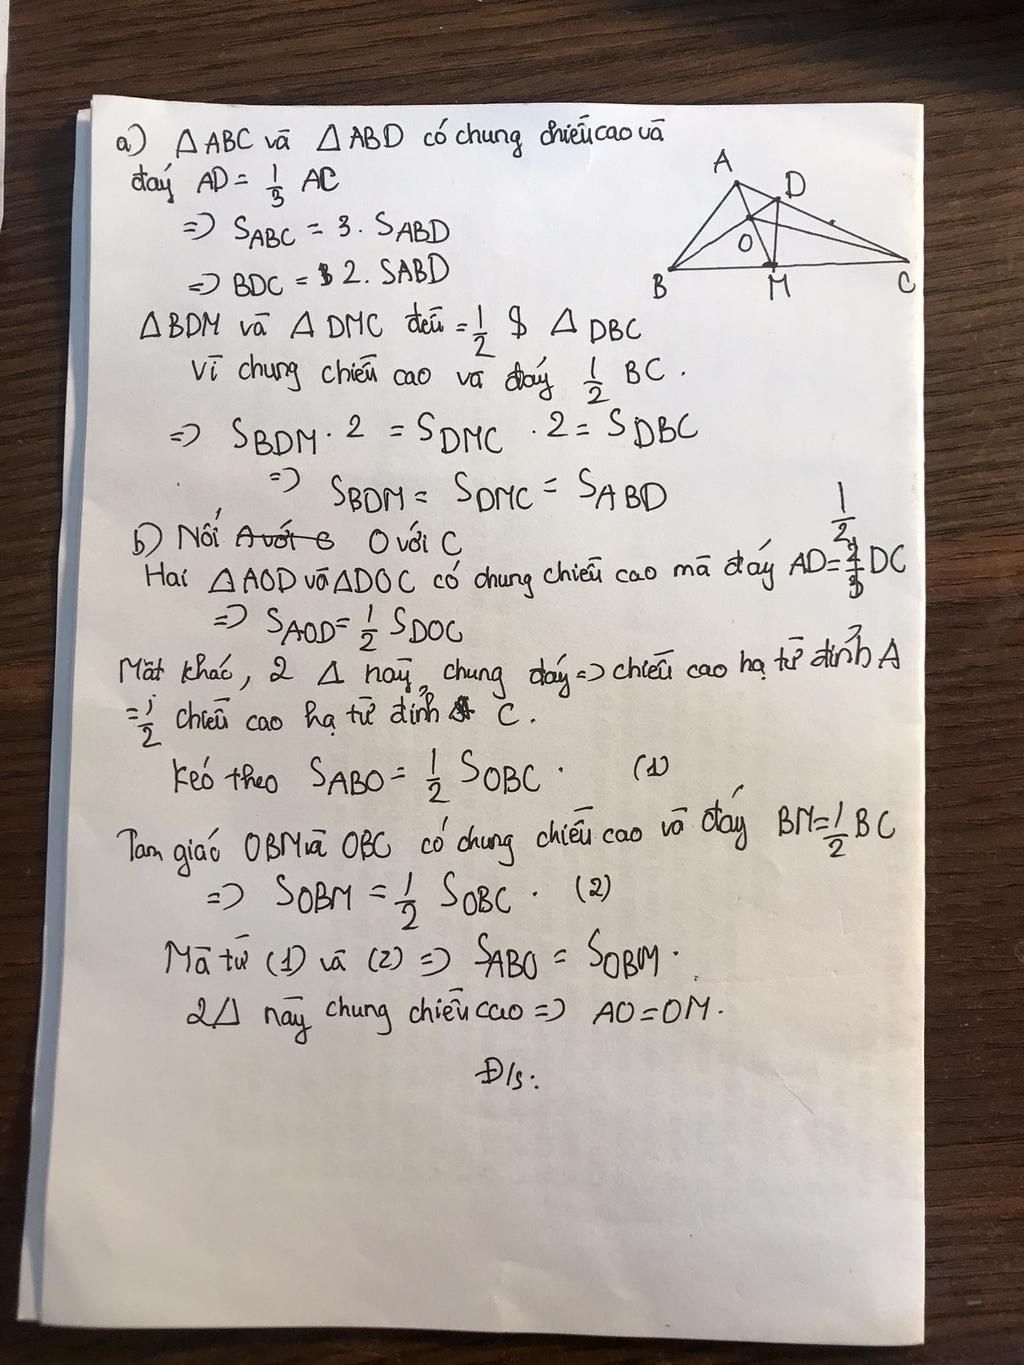 a) Δ ABC và Δ ABD có chung chiều cao và
đáy AD = 1/3 AC
=> SABC = 3. SABD
=> BDC = 2. SABD
Δ BDM và Δ DMC đều = 1/2 S Δ DBC
Vì chung chiều cao và đáy 1/2 BC.
=> SBDM . 2 = SDMC . 2 = SDBC
=> SBDM = SDMC = SABD
b) Nối A với C O với C
Hai Δ AOD và Δ DOC có chung chiều cao mà đáy AD = 1/2 DC
=> SAOD = 1/2 SDOC
Mặt khác, 2 Δ này, chung đáy => chiều cao hạ từ đỉnh A
= 1/2 chiều cao hạ từ đỉnh C.
Kéo theo SABO = 1/2 SOBC . (1)
Tam giác OBM và OBC có chung chiều cao và đáy BM = 1/2 BC
=> SOBM = 1/2 SOBC . (2)
Mà từ (1) và (2) => SABO = SOBM.
2Δ này chung chiều cao => AO = OM.
Đ/s:
A
D
O
B
M
C